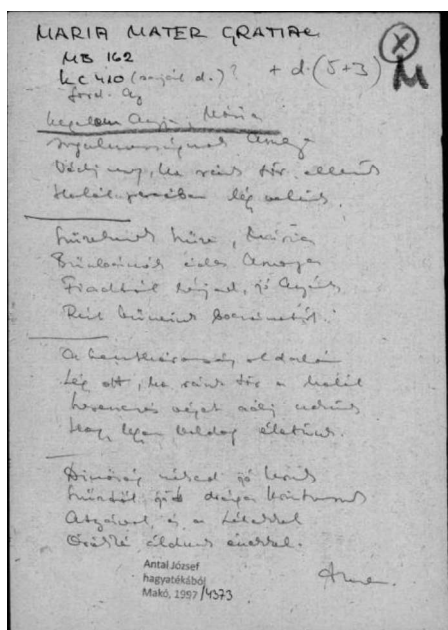 MARIA MATER GRATIAE
MB 162
KC 410 (saját d.)? + d. (5+3) X M
ford. Ay
Kegyelem Anyja, Mária
Irgalmasságnak Anyja
Védj meg, ha ránk tör ellenünk
Halál percében légy velünk.
Szüzeknek Szüze, Mária
édes Anyja
Fiadtól kérjed, jó Anyánk
bocsánatát.
A Szentháromság oldalán
Légy ott, ha ránk tör a halál
véget adj nekünk
Hogy legyen boldog életünk.
Dicsőség néked jó Urunk
Szűztől jött drága Krisztusunk
Atyával, és a Lélekkel
áldunk énekkel.
Amen.
Antal József
hagyatékából
Makó, 1997/4373